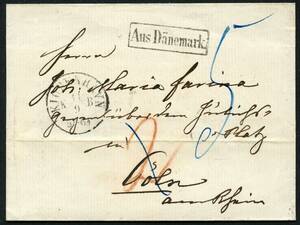 Aus Dänemark
Herrn
Joh Maria Farina
gegenüber dem Jülichs-
Platz
in
Cöln
am Rhein
5